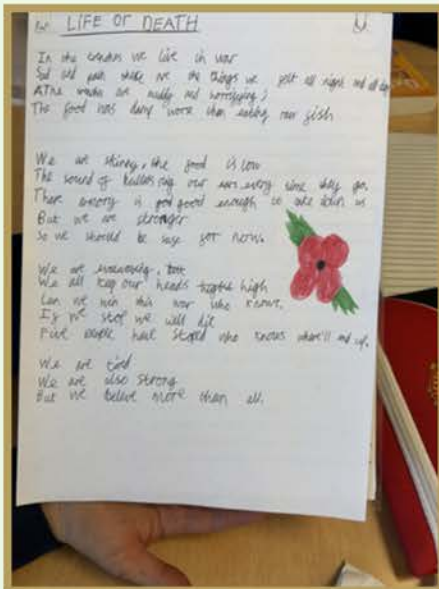 LIFE OR DEATH
In the trenches we live in war
Sad and pain these are the things we felt all night and all day
The trenches are muddy and horrifying,
The food was dang worse than eating raw fish
We are skiney, the food is low
The sound of bullets ring our ears every time they go.
There enemy is good enough to take down us
But we are stronger
So we should be safe for now.
We are
We all keep our heads high
Can we win this war who knows.
If we stop we will die
Five people have stoped who knows where'll end up.
We are tired
We are also strong
But we beleve more than all.